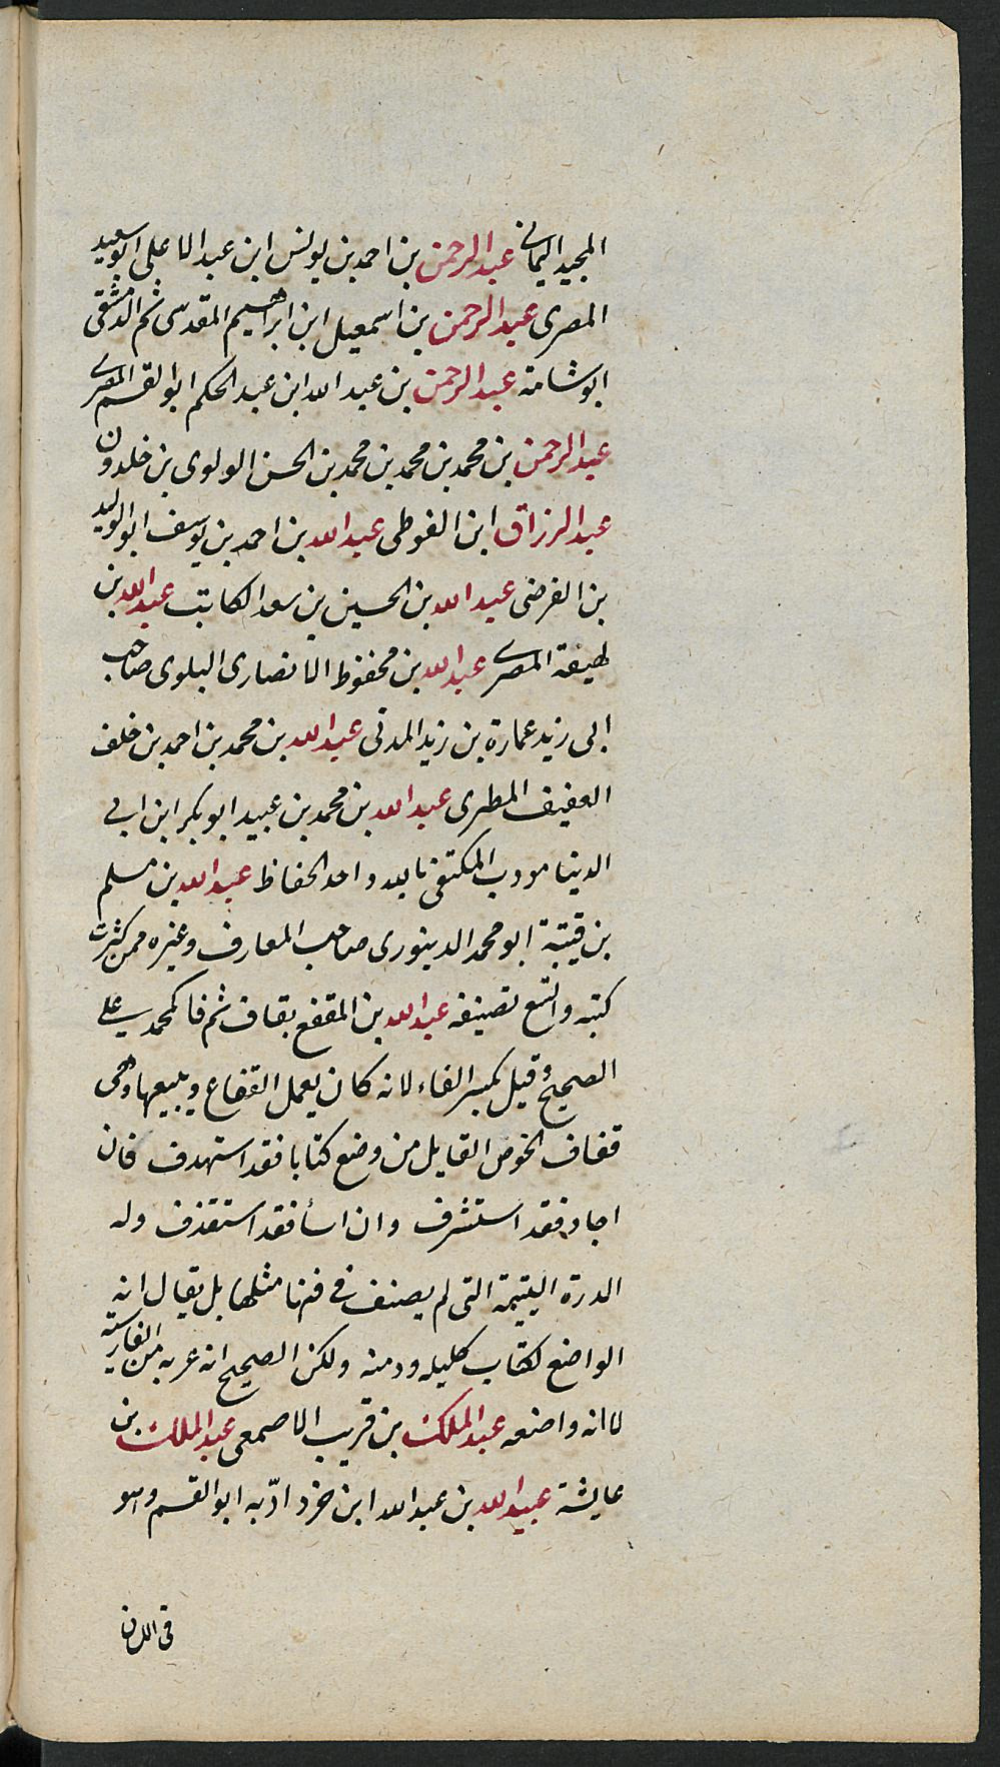 المجيد اليمانى عبدالرحمن بن احمد بن يونس ابن عبد الاعلى ابوسعيد
المصرى عبدالرحمن بن اسمعيل ابن ابراهيم المقدسى ثم الدمشقى
ابو شامة عبدالرحمن بن عبد الله ابن عبد الحكم ابو القسم المصرى
عبدالرحمن بن محمد بن محمد بن محمد بن الحسن الولوى بن خلدون
عبدالرزاق ابن الفوطى عبدالله بن احمد بن يوسف ابو الوليد
بن الفرضى عبدالله بن الحسين بن سعد الكاتب عبدالله بن
لهيعة المصرى عبدالله بن محفوظ الانصارى البلوى صاحب
ابى زيد عمارة بن زيد المدنى عبدالله بن محمد بن احمد بن خلف
العفيف المطرى عبدالله بن محمد بن عبيد ابو بكر ابن ابى
الدنيا مودب المكتفى بالله واحد الحفاظ عبدالله بن مسلم
بن قتيبة ابو محمد الدينورى صاحب المعارف وغيره ممن كثرت
كتبه واتسع تصنيفه عبدالله بن المقفع بقاف ثم فا كمحمد على
الصحيح وقيل بكسر الفاء لانه كان يعمل القفاع ويبيعها وهى
قفاف الخوص القايل من وضع كتابا فقد استهدف فان
اجاد فقد استشرف وان اسأ فقد استقذف وله
الدرة اليتيمة التى لم يصنف فى فنها مثلها بل يقال انه
الواضع لكتاب كليله ودمنه ولكن الصحيح انه عربه من الفارسية
لا انه واضعه عبدالملك بن قريب الاصمعى عبدالملك بن
عايشة عبيدالله بن عبدالله ابن خرداذبه ابو القسم وهو
فى الان